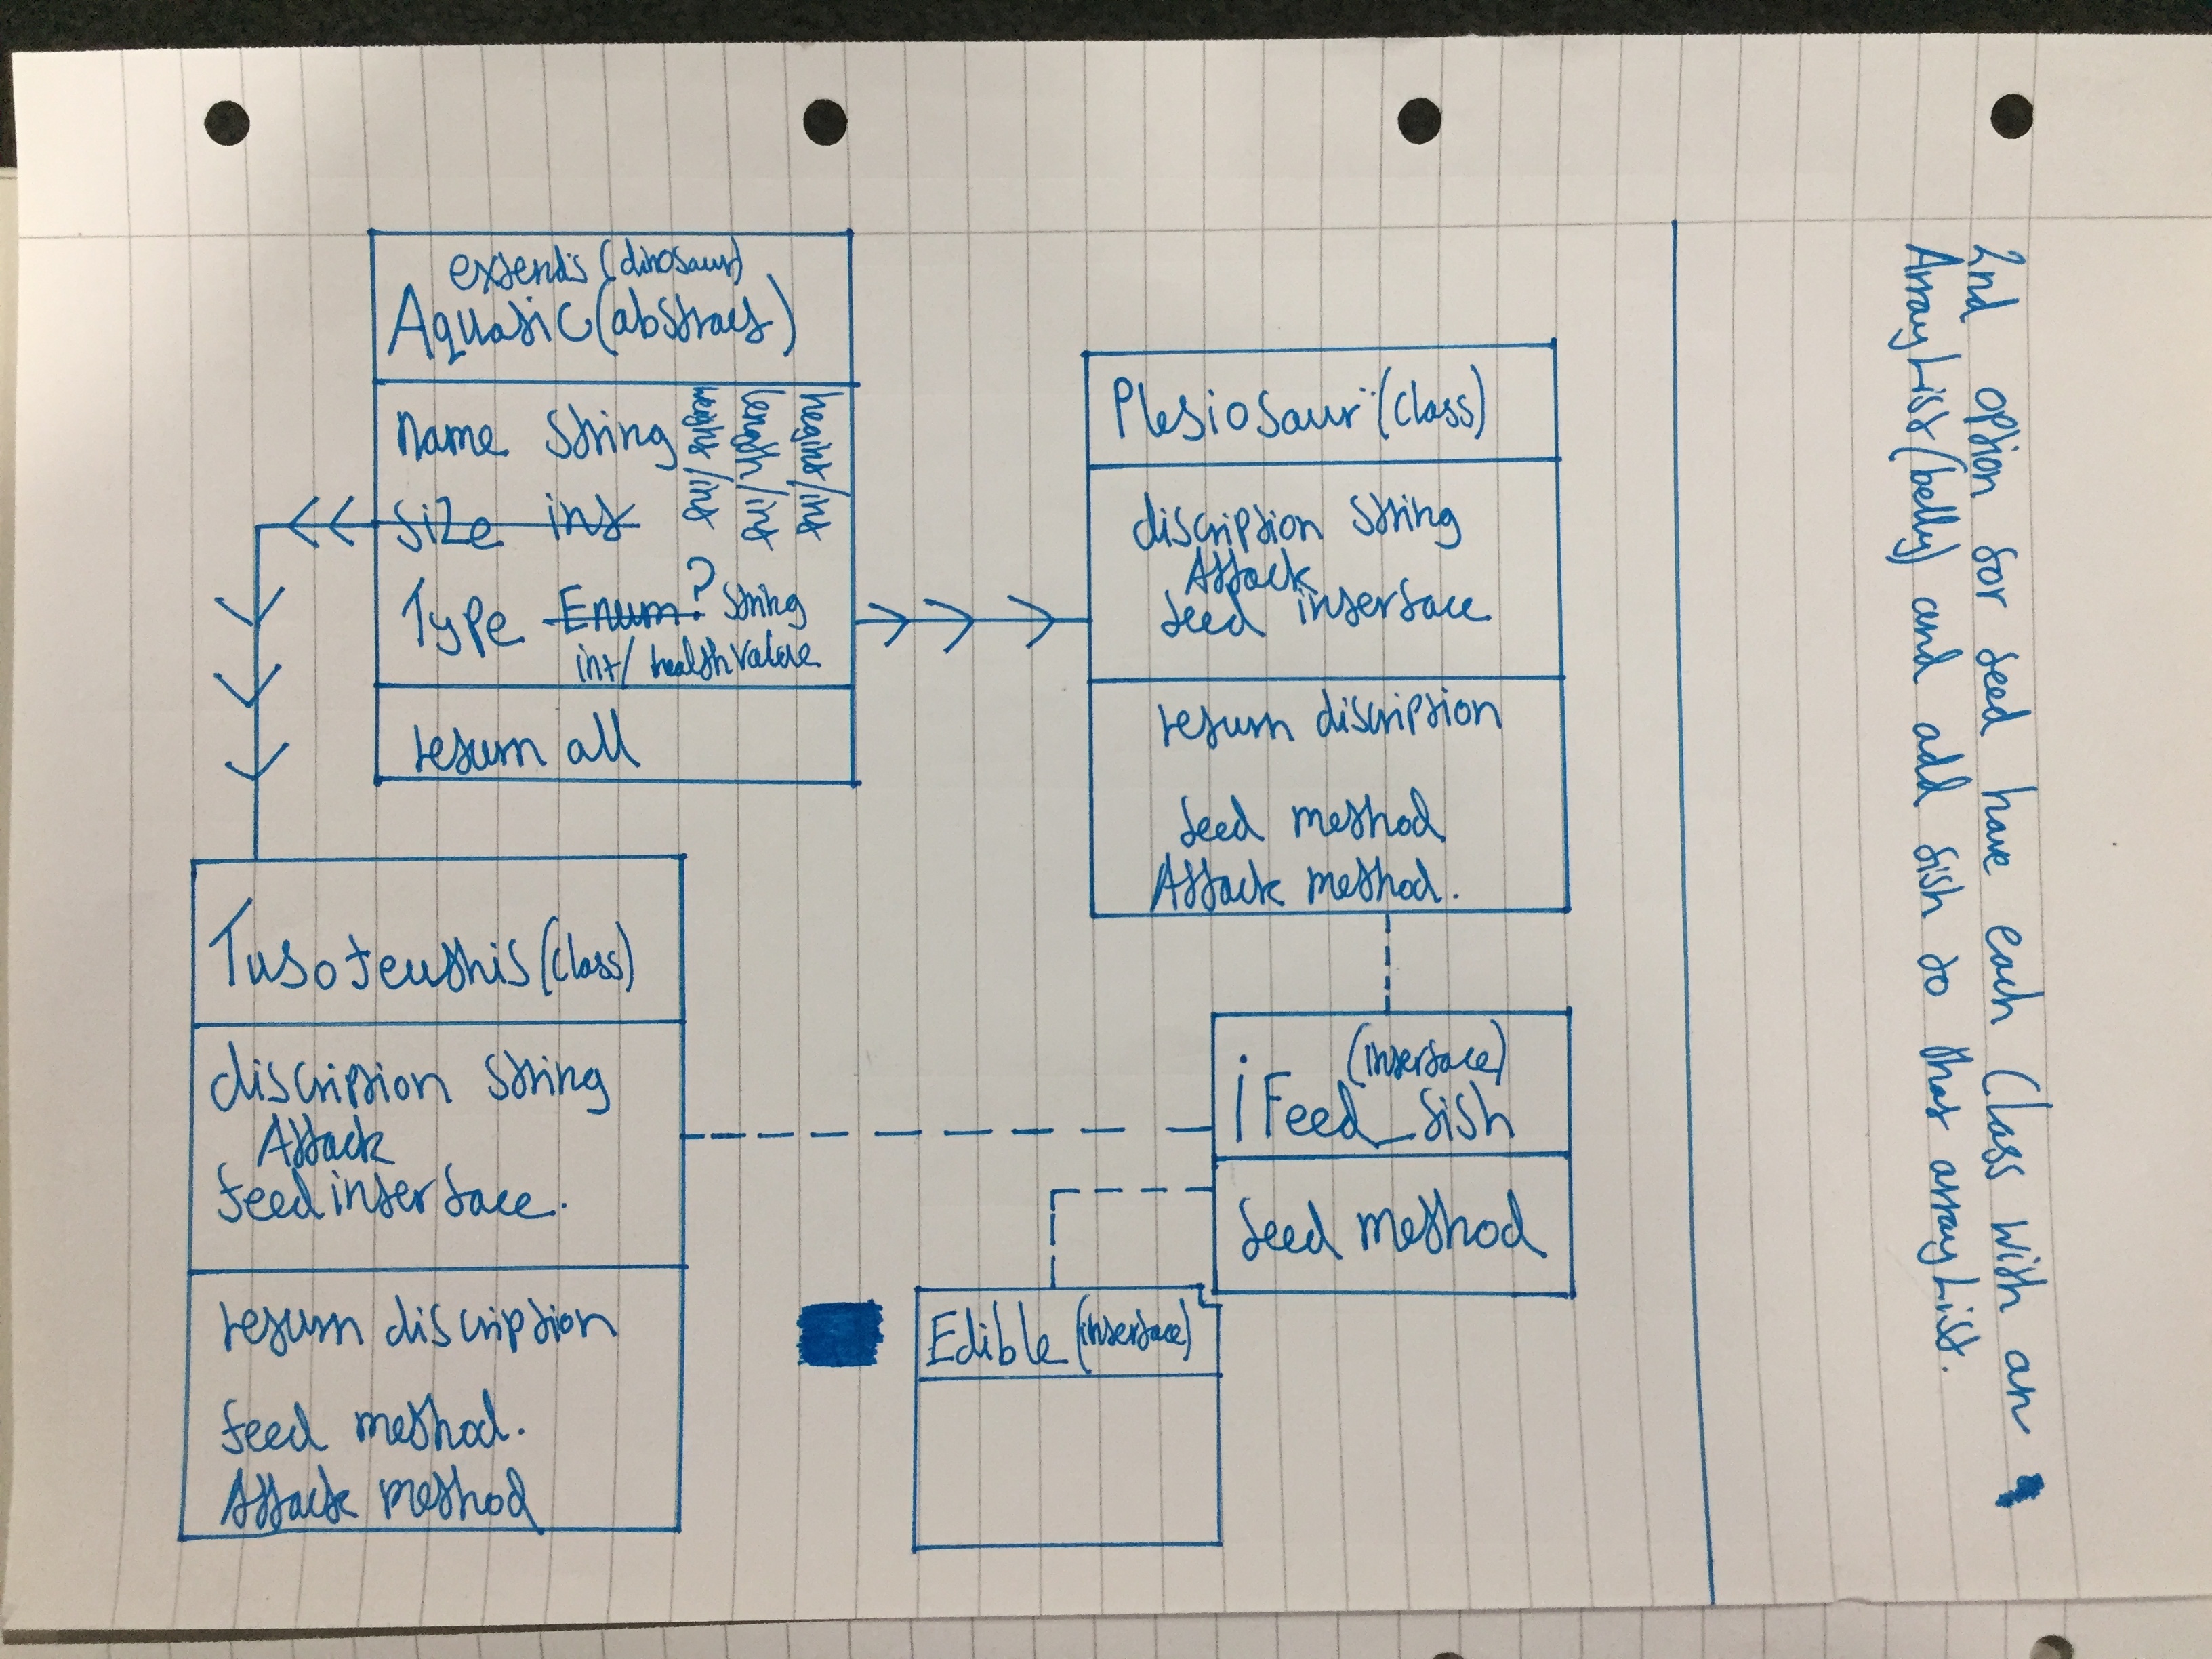 extends (dinosaur)
Aquatic (abstract)
name string
size int
Type Enum? string
int/ healthvalue
weight/int
length/int
hegint/int
return all
Plesiosaur (class)
discription string
Attack
feed interface
return discription
feed method
Attack method.
Tusoteuthis (class)
discription string
Attack
feed interface.
return discription
feed method.
Attack method
(interface)
iFeed_fish
feed method
Edible (interface)
2nd option for feed have each class with an
ArrayList(belly) and add fish to that arrayList.